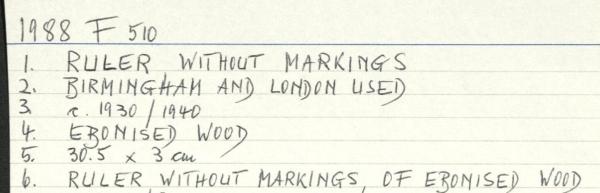 1988 F 510
1. RULER WITHOUT MARKINGS
2. BIRMINGHAM AND LONDON USED
3 c. 1930 / 1940
4. EBONISED WOOD
5. 30.5 x 3 cm
6. RULER WITHOUT MARKINGS, OF EBONISED WOOD